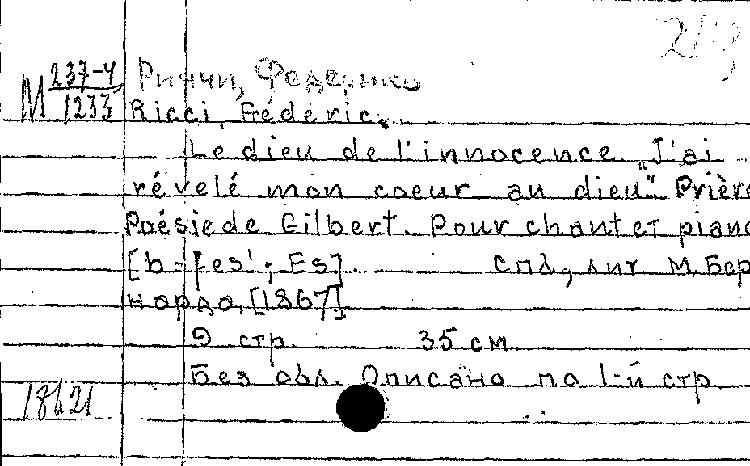 М 237-4/1233
Риччи, Федерико
Ricci, Federic.
Le dieu de l'innocence. "J'ai
révélé mon coeur au dieu". Prière
Poésie de Gilbert. Pour chant et piano
[b-fes'; Es]. Спб, лит М. Бер
нарда, [1867]
9 стр. 35 см
Без обл. Описано по 1-й стр.
18621